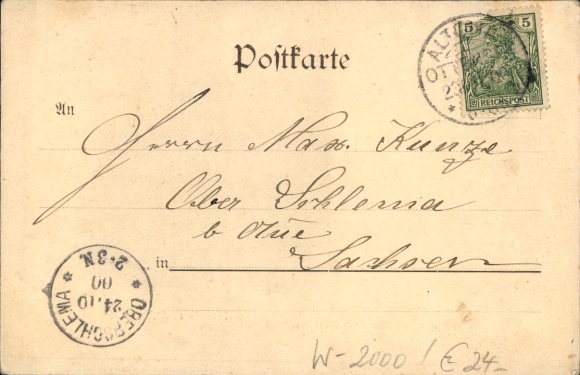 Postkarte
5 5
REICHSPOST
ALTO
An
Herrn Max Kunze
Ober Schlema
b Aue
in Sachsen
OBERSCHLEMA
24.10
00
2-3N.
W-2000! € 24-